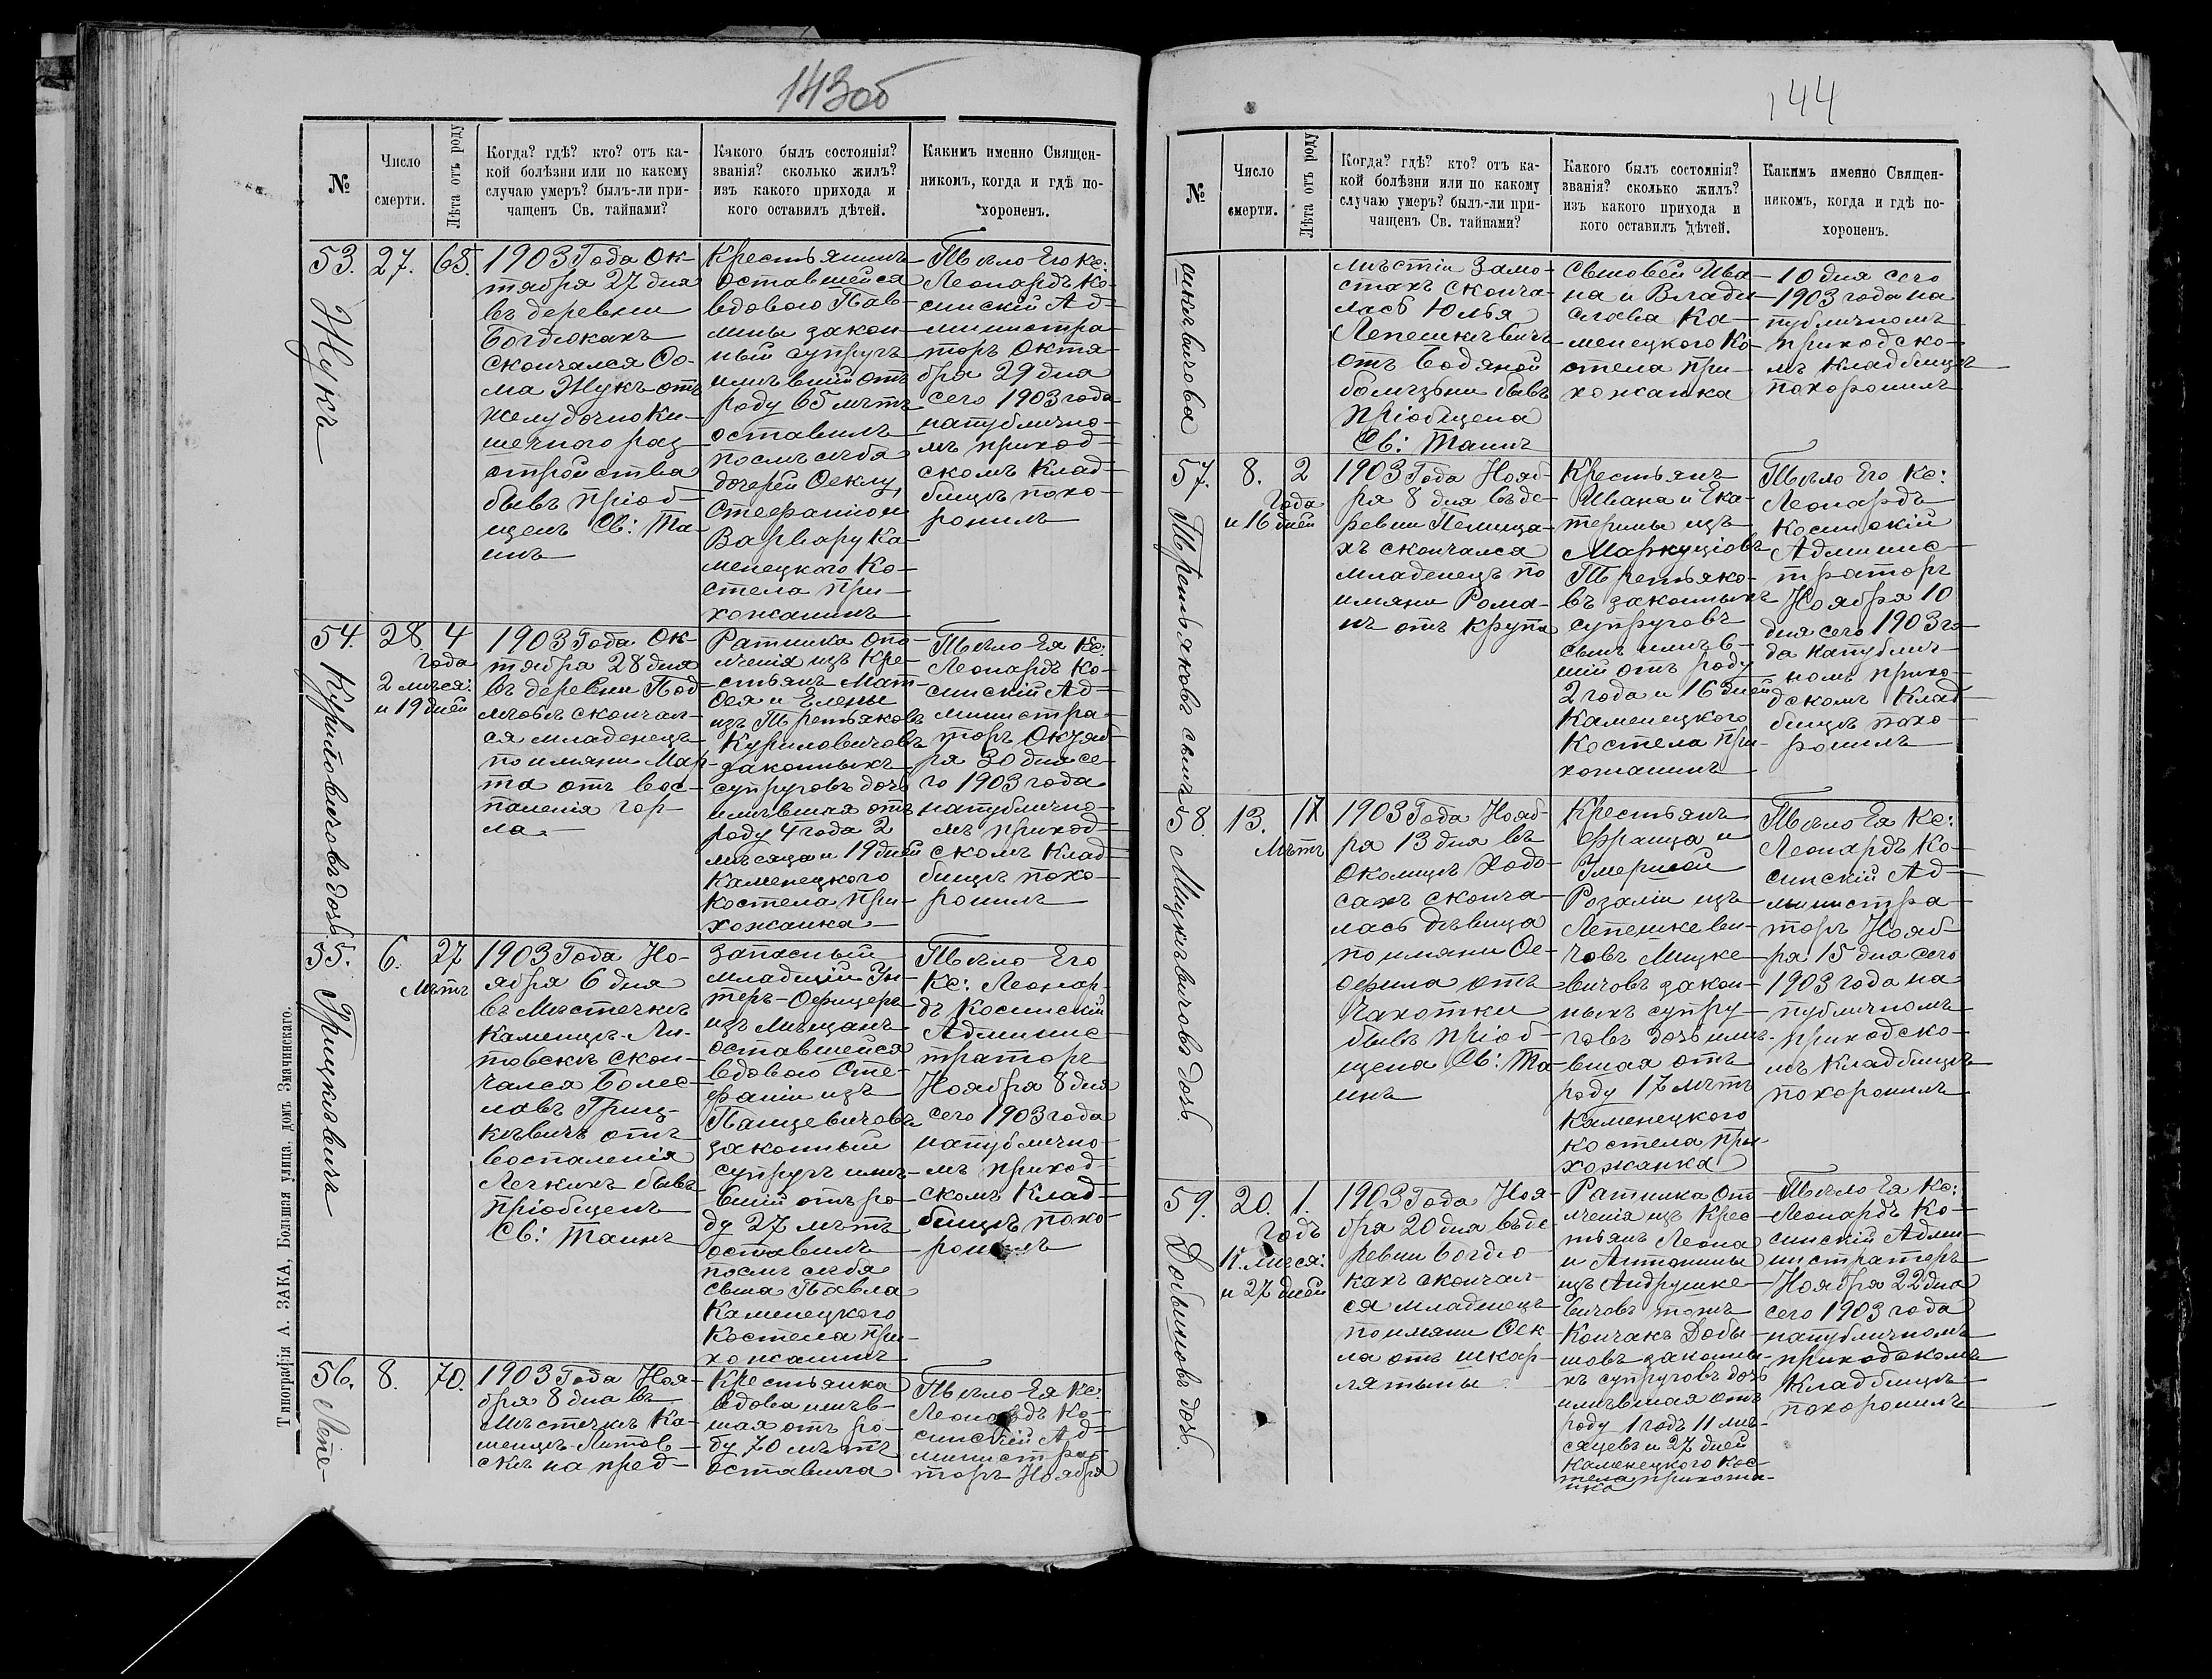 143об
№
Число
смерти.
Лѣта отъ роду
Когда? гдѣ? кто? отъ ка-
кой болѣзни или по какому
случаю умеръ? былъ-ли при-
чащенъ Св. тайнами?
Какого былъ состоянія?
званія? сколько жилъ?
изъ какого прихода и
кого оставилъ дѣтей.
Какимъ именно Священ-
никомъ, когда и гдѣ по-
хороненъ.
53.
Жукъ
27.
65.
1903 Года Ок-
тября 27 дня
въ деревни
Богдюкахъ
скончался Ѳо-
ма Жукъ отъ
желудочно Ки-
шечнаго раз
стройства
бывъ пріоб-
щенъ Св: Та-
инъ
Крестьянинъ
оставшейся
вдовою Пав-
лины закон-
ный супругъ
имѣвшій отъ
роду 65 лѣтъ
оставилъ
послѣ себя
дочерей Ѳеклу,
Стефанію и
Варвару Ка-
менецкого Ко-
стела При-
хожанинъ
Тѣло Его Кс:
Леонардъ Ко-
синскій Ад-
министра-
торъ Октя-
бря 29 дня
сего 1903 года
напублично-
мъ приход-
скомъ Клад-
бищѣ похо-
ронилъ
54.
Куриловичовъ дочь.
28.
4
года
2 мѣся:
и 19 дней
1903 Года Ок-
тября 28 дня
въ деревни Под-
скончал-
ся младенецъ
по имяни Мар-
та отъ вос-
паленія гор-
ла.
Ратника опо-
лченія изъ Кре-
стьянъ Мат-
ѳея и Елены
изъ Третьяковъ
Куриловичовъ
законныхъ
супруговъ дочь
имѣвшая отъ
роду 4 года 2
мѣсяца и 19 дней
Каменецкого
Костела При-
хожанка
Тѣло Ея Кс:
Леонардъ Ко-
синскій Ад-
министра-
торъ Октяб-
ря 30 дня се-
го 1903 года
напублично-
мъ приход-
скомъ Клад-
бищѣ похо-
ронилъ
55.
Грицкѣвичъ
6.
27
лѣтъ
1903 Года Но-
ября 6 дня
въ Мѣстечкѣ
Каменцѣ-Ли-
товскѣ скон-
чался Болес-
лавъ Гриц-
кѣвичъ отъ
воспаленія
Легкихъ бывъ
пріобщенъ
Св: Таинъ
Запасный
младшій Ун-
теръ-Офицеръ
изъ Мѣщанъ
оставшейся
вдовою Сте-
фаніи изъ
Панцевичовъ
законный
супругъ имѣ-
вшій отъ ро-
ду 27 лѣтъ
оставилъ
послѣ себя
сына Павла
Каменецкого
Костела при-
хожанинъ
Тѣло Его
Кс: Леонар-
дъ Косинскій
Админис-
траторъ
Ноября 8 дня
сего 1903 года
напублично-
мъ приход-
скомъ Клад-
бищѣ похо-
ронилъ
56.
Лепе-
8.
70.
1903 Года Ноя-
бря 8 дня въ
Мѣстечкѣ Ка-
менцѣ-Литов-
скѣ на пред-
Крестьянка
вдова имѣв-
шая отъ ро-
ду 70 лѣтъ
оставила
Тѣло Ея Кс:
Леонардъ Ко-
синскій Ад-
министра-
торъ Ноября
Типографія А. ЗАКА, Большая улица, домъ Змачинскаго.
144
№
Число
смерти.
Лѣта отъ роду
Когда? гдѣ? кто? отъ ка-
кой болѣзни или по какому
случаю умеръ? былъ-ли при-
чащенъ Св. тайнами?
Какого былъ состоянія?
званія? сколько жилъ?
изъ какого прихода и
кого оставилъ дѣтей.
Какимъ именно Священ-
никомъ, когда и гдѣ по-
хороненъ.
шкѣвичова
мѣстіи Замо-
стахъ сконча-
лась Юлья
Лепешкѣвичъ
отъ водяной
болѣзни бывъ
пріобщена
Св: Таинъ
сыновей Ива-
на и Влади-
слава Ка-
менецкого Ко-
стела при-
хожанка
10 дня сего
1903 года на
публичномъ
приходско-
мъ Кладбищѣ
похоронилъ
57.
Третьяковъ сынъ
8.
2
года
и 16 дней
1903 Года Нояб-
ря 8 дня въ де-
ревни Пеница-
хъ скончался
младенецъ по
имяни Рома-
нъ отъ крупа
Крестьянъ
Ивана и Ека-
терины изъ
Маркуціовъ
Третьяко-
въ законныхъ
супруговъ
сынъ имѣв-
шій отъ роду
2 года и 16 дней
Каменецкого
Костела При-
хожанинъ
Тѣло Его Кс:
Леонардъ
Косинскій
Админис-
траторъ
Ноября 10
дня сего 1903 го-
да напублич-
номъ прихо-
дскомъ Клад-
бищѣ похо-
ронилъ
58.
Мицкѣвичовъ дочь.
13.
17
Лѣтъ
1903 Года Нояб-
ря 13 дня въ
Околицѣ Ходо-
сахъ сконча-
лась дѣвица
по имяни Ѳе-
офила отъ
Чахотки
бывъ пріоб-
щена Св: Та-
инъ
Крестьянъ
Франца и
Умершей
Розаліи изъ
Лепешкеви-
човъ Мицке-
вичовъ закон-
ныхъ супру-
говъ дочь имѣ-
вшая отъ
роду 17 лѣтъ
Каменецкого
костела При-
хожанка
Тѣло Ея Кс:
Леонардъ Ко-
синскій Ад-
министра-
торъ Нояб-
ря 15 дня сего
1903 года на
публичномъ
приходско-
мъ Кладбищѣ
похоронилъ
59.
Добышовъ дочь.
20.
1.
годъ
11 мѣся:
и 27 дней
1903 Года Ноя-
бря 20 дня въ де
ревни Богдю-
кахъ скончал-
ся младенецъ
по имяни Ѳек-
ла отъ шкар-
лятыны
Ратника опо
лченія изъ Крес
тьянъ Леона
и Антонины
изъ Андрушке-
вичовъ тожъ
Кончакъ Добы-
шовъ законны-
хъ супруговъ дочь
имѣвшая отъ
роду 1 годъ 11 мѣ-
сяцевъ и 27 дней
Каменецкого Кос-
тела прихожа-
нка
Тѣло Ея Кс:
Леонардъ Ко-
синскій Адми-
нистраторъ
Ноября 22 дня
сего 1903 года
напубличномъ
приходскомъ
Кладбищѣ
похоронилъ